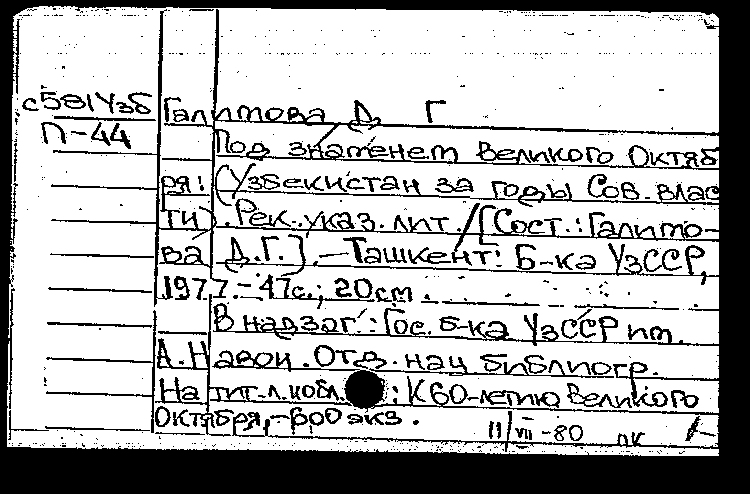 с581Узб
П-44
Галимова Д. Г
Под знаменем Великого Октяб
ря: (Узбекистан за годы Сов. влас
ти). Рек. указ. лит. / [Сост.: Галимо-
ва Д.Г.]. — Ташкент: Б-ка УзССР,
1977. - 47с.; 20см.
В надзаг.: Гос. б-ка УзССР им.
А. Навои. Отд. нац библиогр.
На тит. л. и обл. : К 60-летию Великого
Октября, - 600 экз.
11/VII-80 пк